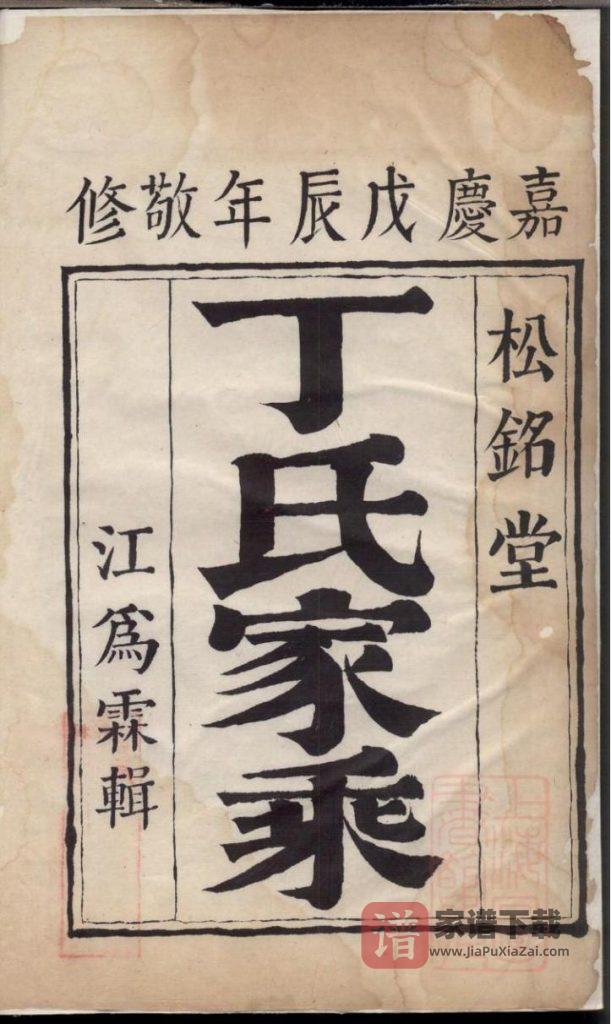 嘉慶戊辰年敬修
松銘堂
丁氏家乘
江爲霖輯
谱
家谱下载
www.JiaPuXiaZai.com